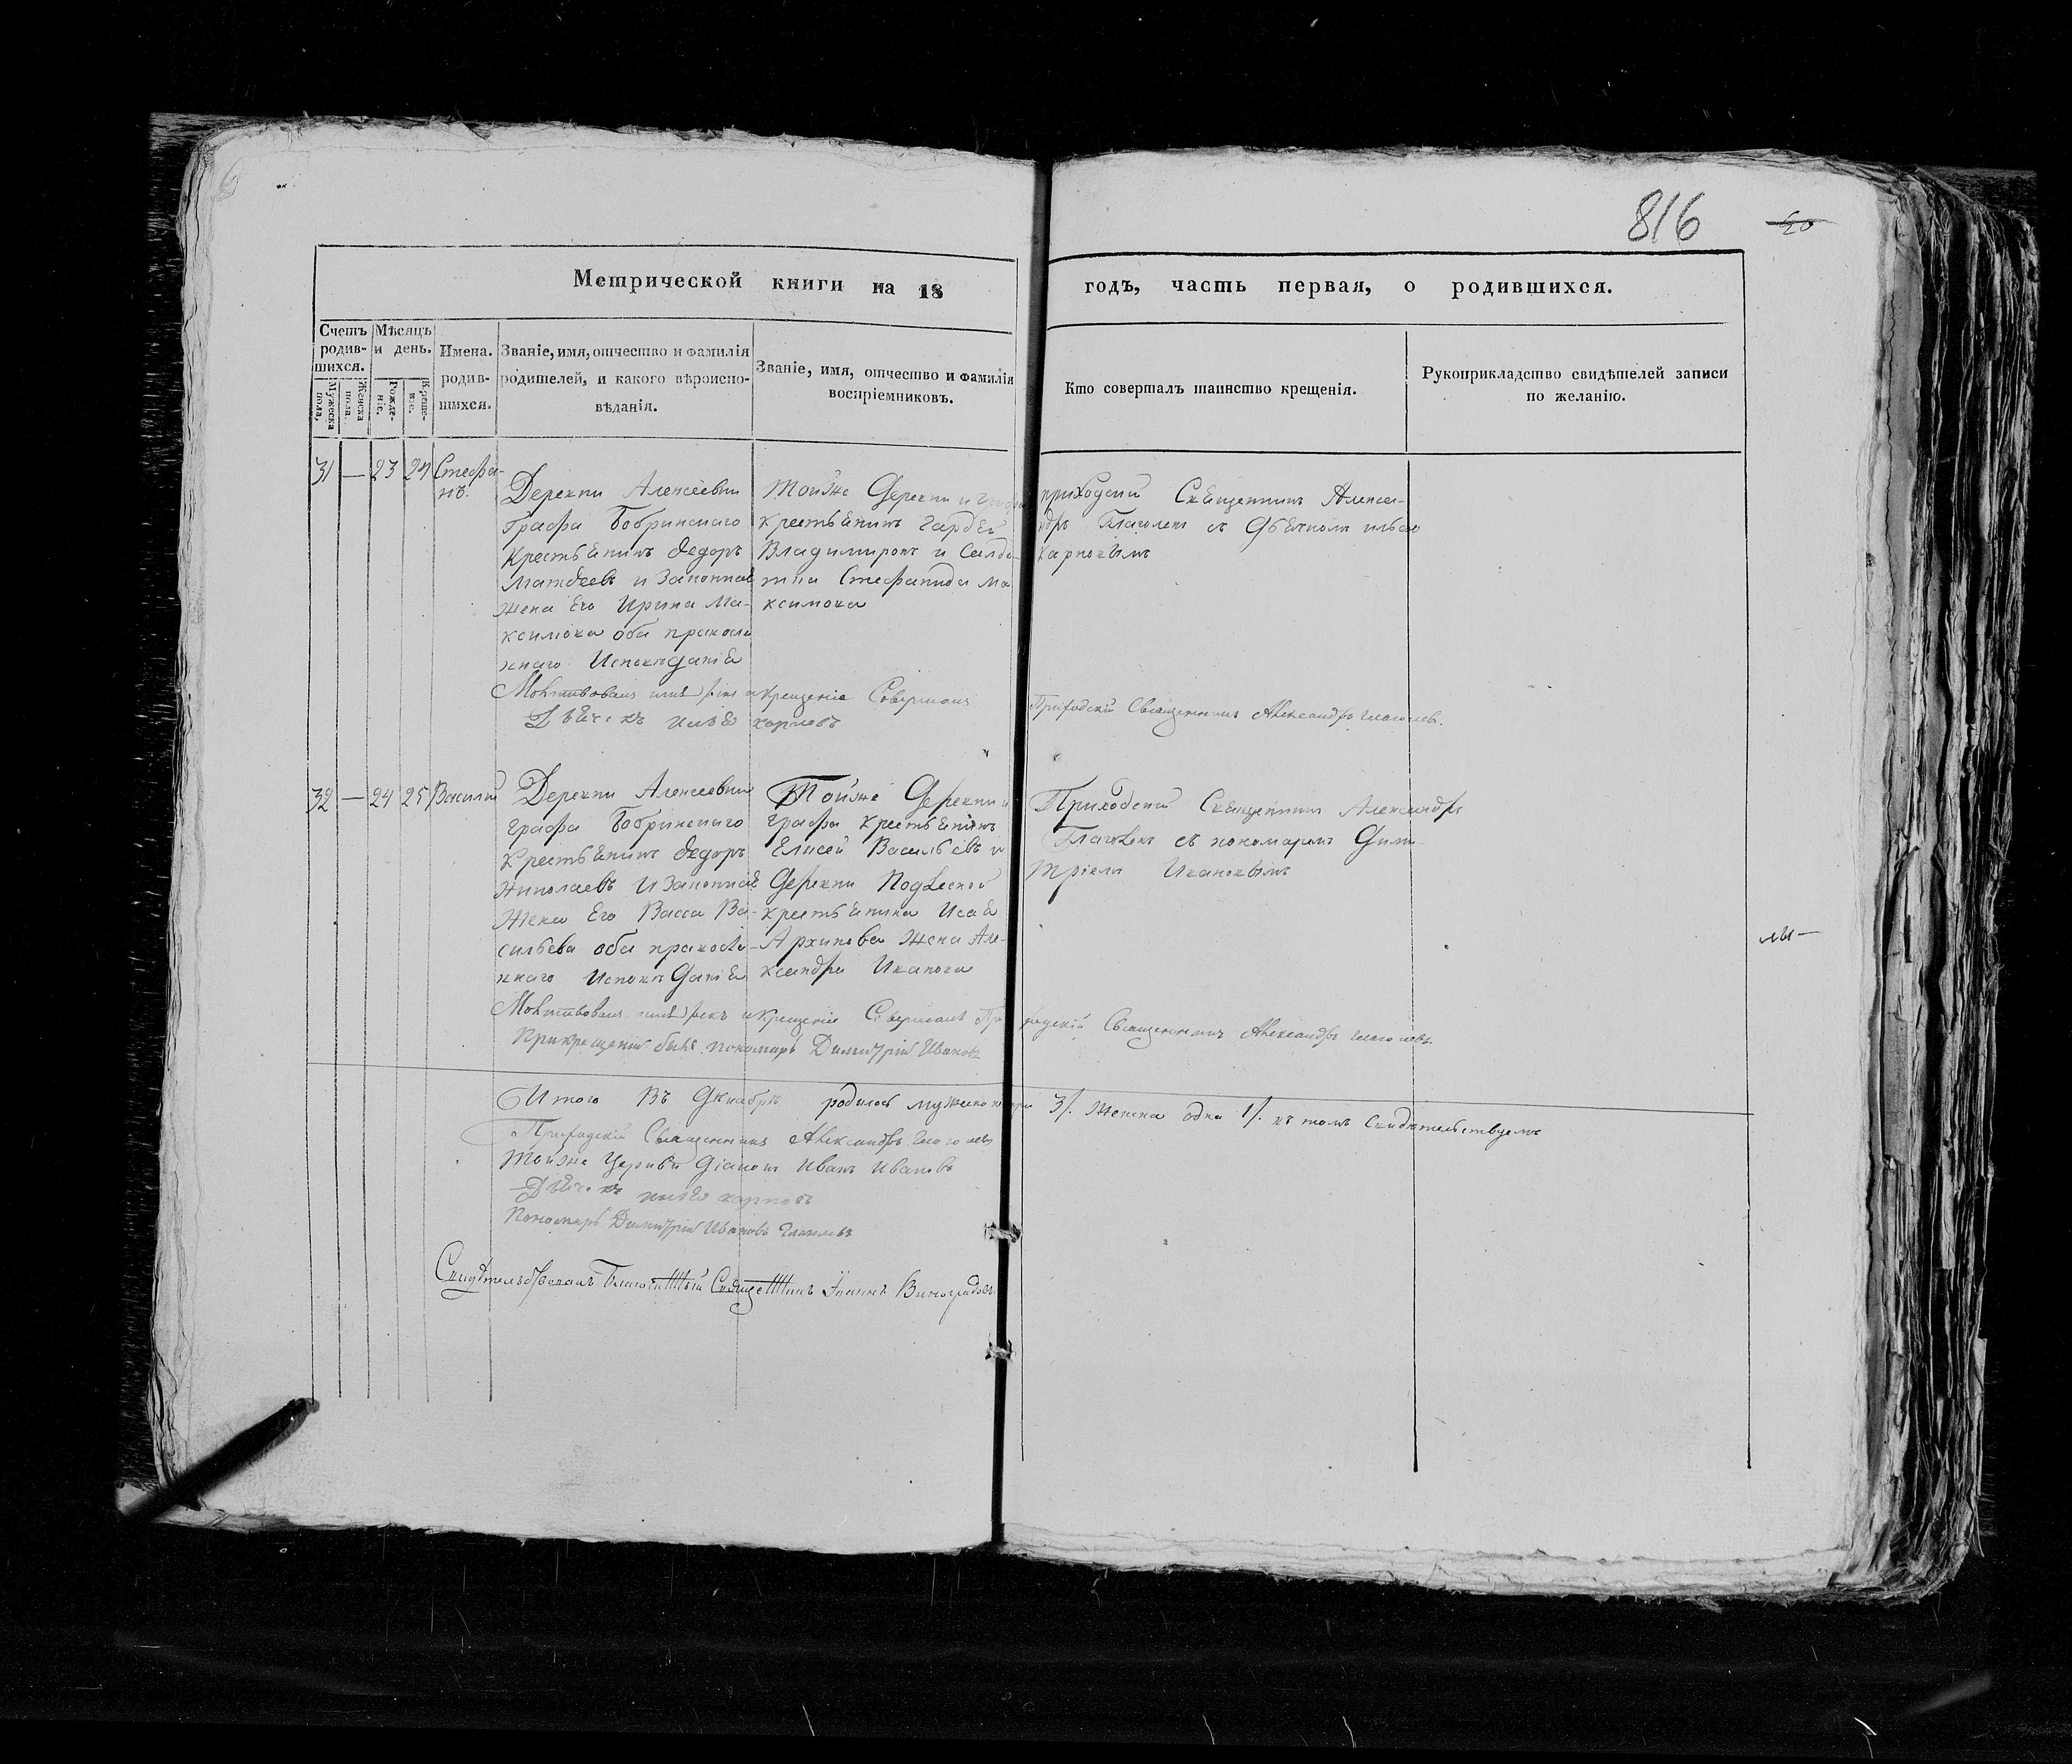 816
Метрической книги на 18 годъ, часть первая, о родившихся.
Счетъ родившихся.
Мужеска пола,
Женска пола.
Мѣсяцъ и день.
Рождение.
Крещение.
Имена родившихся.
Званіе, имя, отчество и фамилія
родителей, и какого вѣроиспо-
вѣданія.
Званіе, имя, отчество и фамилія
воспріемниковъ.
Кто совершалъ таинство крещенія.
Рукоприкладство свидѣтелей записи
по желанію.
31 — 23 24 Стефа-
нъ.
Деревни Алексеевки
Графа Бобринскаго
Крестьянинъ Федоръ
Матвеевъ и Законная
жена Его Ирина Ма-
ксимова оба правосла
внаго Исповѣданія
Тойже Деревни и Графа
крестьянинъ Гордей
Владимировъ и Солда-
тка Стефанида Ма
ксимова
приходскій Священникъ Алекса-
ндръ Глаголевъ с Дьячкомъ Ильею
Карповымъ
Молитвовалъ имя рекъ и Крещеніе Совершалъ Приходскій Священникъ Александръ Глаголевъ.
Дьячекъ Илья Карповъ
32 — 24 25 Василій
Деревни Алексеевки
Графа Бобринскаго
Крестьянинъ Федоръ
Николаевъ И Законная
Жена Его Васса Ва-
сильева оба правосла-
внаго Исповѣданія
Тойже Деревни и
Графа Крестьянинъ
Елисей Васильевъ и
Деревни Подлесной
крестьянина Исая
Архипова Жена Але-
ксандра Иванова
Приходскій Священникъ Александръ
Глаголевъ съ пономаремъ Дими-
тріемъ Ивановымъ
Молитвовалъ имя рекъ и Крещеніе Совершалъ Приходскій Священникъ Александръ Глаголевъ.
При крещеніи былъ пономарь Димитрій Ивановъ
Итого Въ Декабрѣ родилось мужеска три 3/. Женска одна 1/. въ томъ Свидѣтельствуемъ
Приходскій Священникъ Александръ Глаголевъ
Тойже Церкви Діаконъ Иванъ Ивановъ
Дьячекъ Илья Карповъ
Пономарь Димитрій Ивановъ Глаголевъ
Свидѣтельствовалъ Благочинный Священникъ Іоаннъ Виноградовъ